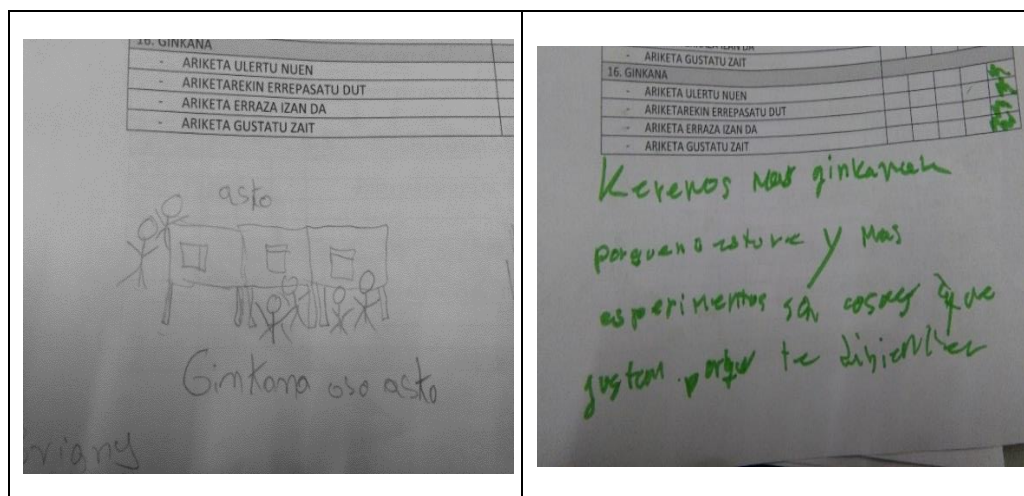 16. GINKANA
- ARIKETA ULERTU NUEN
- ARIKETAREKIN ERREPASATU DUT
- ARIKETA ERRAZA IZAN DA
- ARIKETA GUSTATU ZAIT
asko
Ginkana oso asko
- ARIKETA GUSTATU ZAIT
16. GINKANA
- ARIKETA ULERTU NUEN
- ARIKETAREKIN ERREPASATU DUT
- ARIKETA ERRAZA IZAN DA
- ARIKETA GUSTATU ZAIT
Keremos mas
y mas
esperimentos que
gustan te